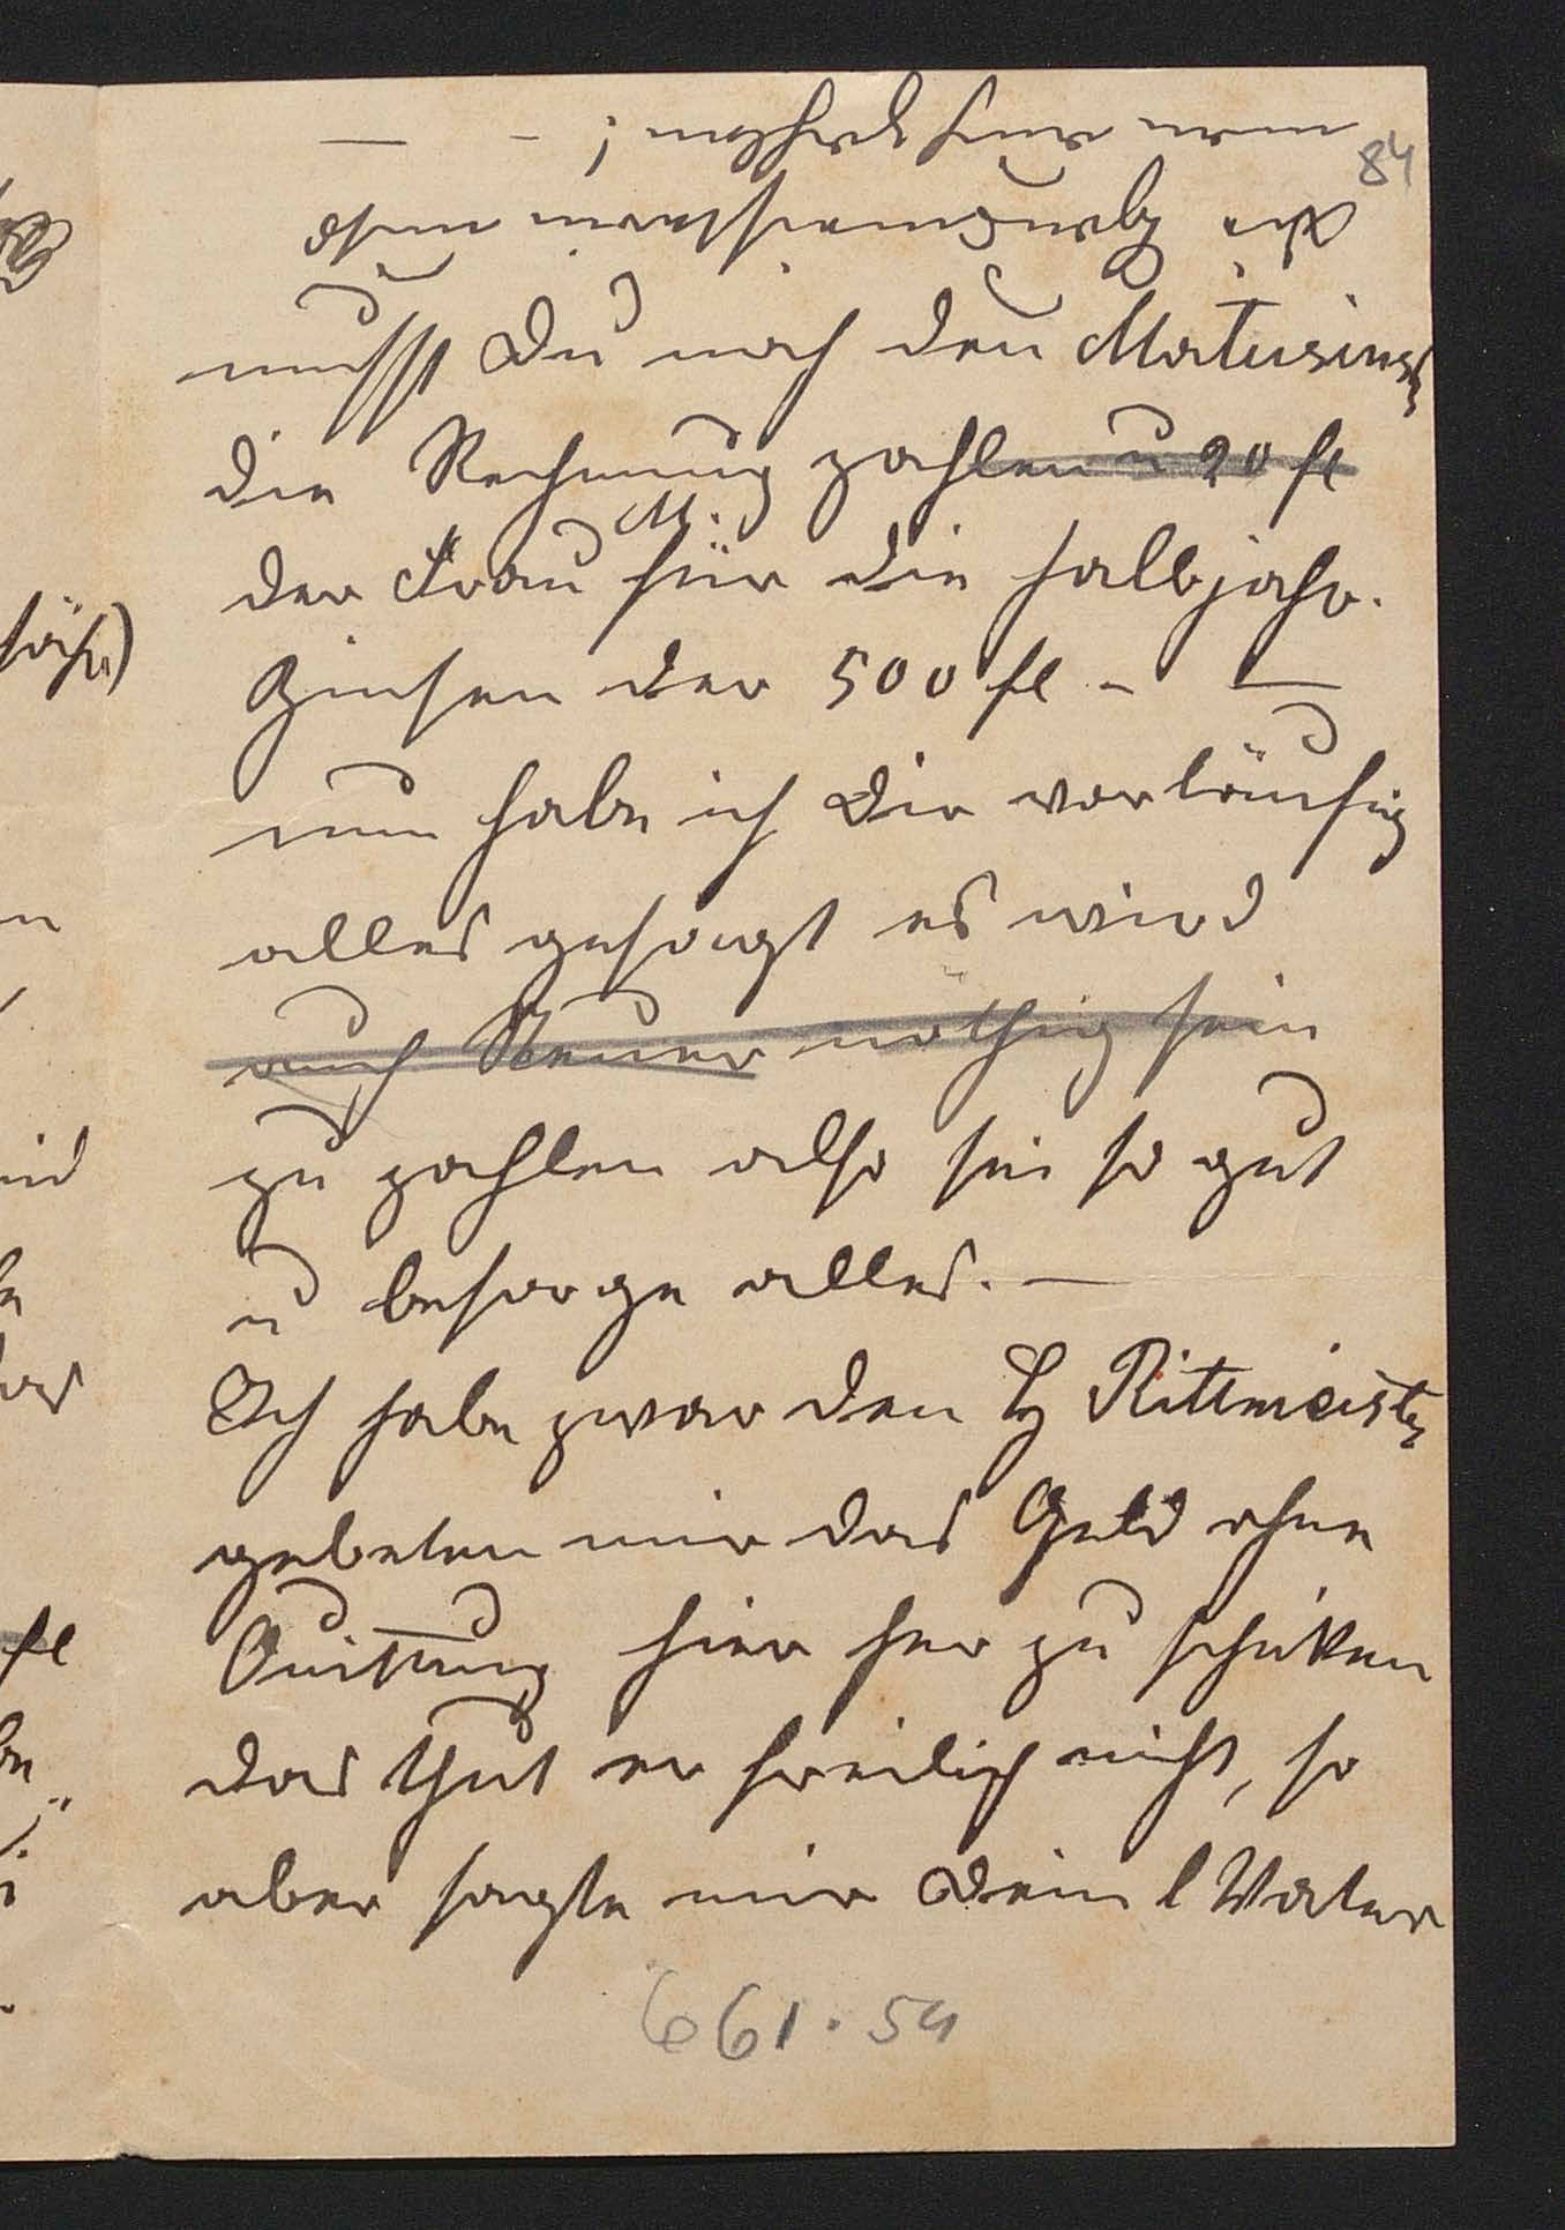 84
musst Du noch den
die Rechnung zahlen u 20 fl
der Frau M. für die halbjahr.
Zinsen der 500 fl - —
nun habe ich Dir vorläufig
alles gesagt es wird
auch Steuer nöthig sein
zu zahlen also sei so gut
u besorge alles. —
Ich habe zwar den H Rittmeister
gebeten mir das Geld ohne
Quittung hier her zu schiken
das thut er freilich nicht, so
aber sagte mir Dein l Vater
661.54